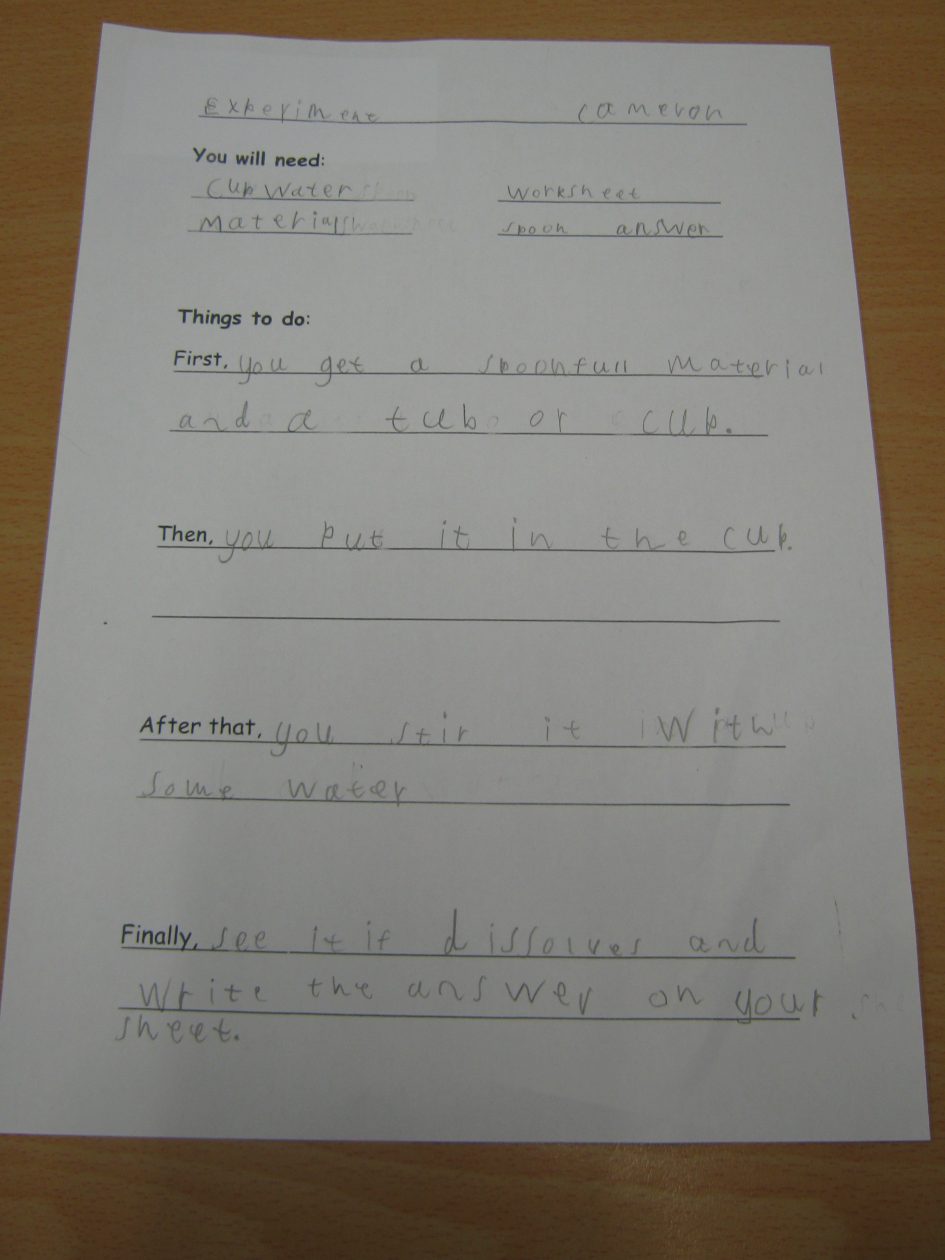 Experiment cameron
You will need:
Cup water worksheet
Materials spoon answer
Things to do:
First, you get a spoonfull material
and a tub or cup.
Then, you put it in the cup.
After that, you stir it with
some water
Finally, see it if dissolves and
write the answer on your
sheet.